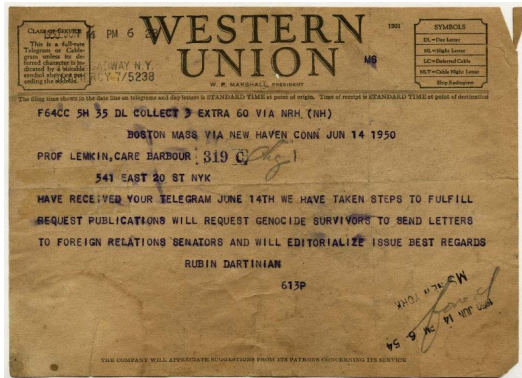 CLASS OF SERVICE
This is a full-rate
Telegram or Cable-
gram unless its de-
ferred character is in-
dicated by a suitable
symbol above or pre-
ceding the address.
PM 6 2
WESTERN
UNION
1201
MS
W. P. MARSHALL, PRESIDENT
SYMBOLS
DL=Day Letter
NL=Night Letter
LC=Deferred Cable
NLT=Cable Night Letter
Ship Radiogram
The filing time shown in the date line on telegrams and day letters is STANDARD TIME at point of origin. Time of receipt is STANDARD TIME at point of destination
F64CC 5H 35 DL COLLECT 3 EXTRA 60 VIA NRH (NH)
BOSTON MASS VIA NEW HAVEN CONN JUN 14 1950
PROF LEMKIN, CARE BARBOUR
319 C
541 EAST 20 ST NYK
HAVE RECEIVED YOUR TELEGRAM JUNE 14TH WE HAVE TAKEN STEPS TO FULFILL
REQUEST PUBLICATIONS WILL REQUEST GENOCIDE SURVIVORS TO SEND LETTERS
TO FOREIGN RELATIONS SENATORS AND WILL EDITORIALIZE ISSUE BEST REGARDS
RUBIN DARTINIAN
613P
1950 JUN 14 PM 6 54
THE COMPANY WILL APPRECIATE SUGGESTIONS FROM ITS PATRONS CONCERNING ITS SERVICE